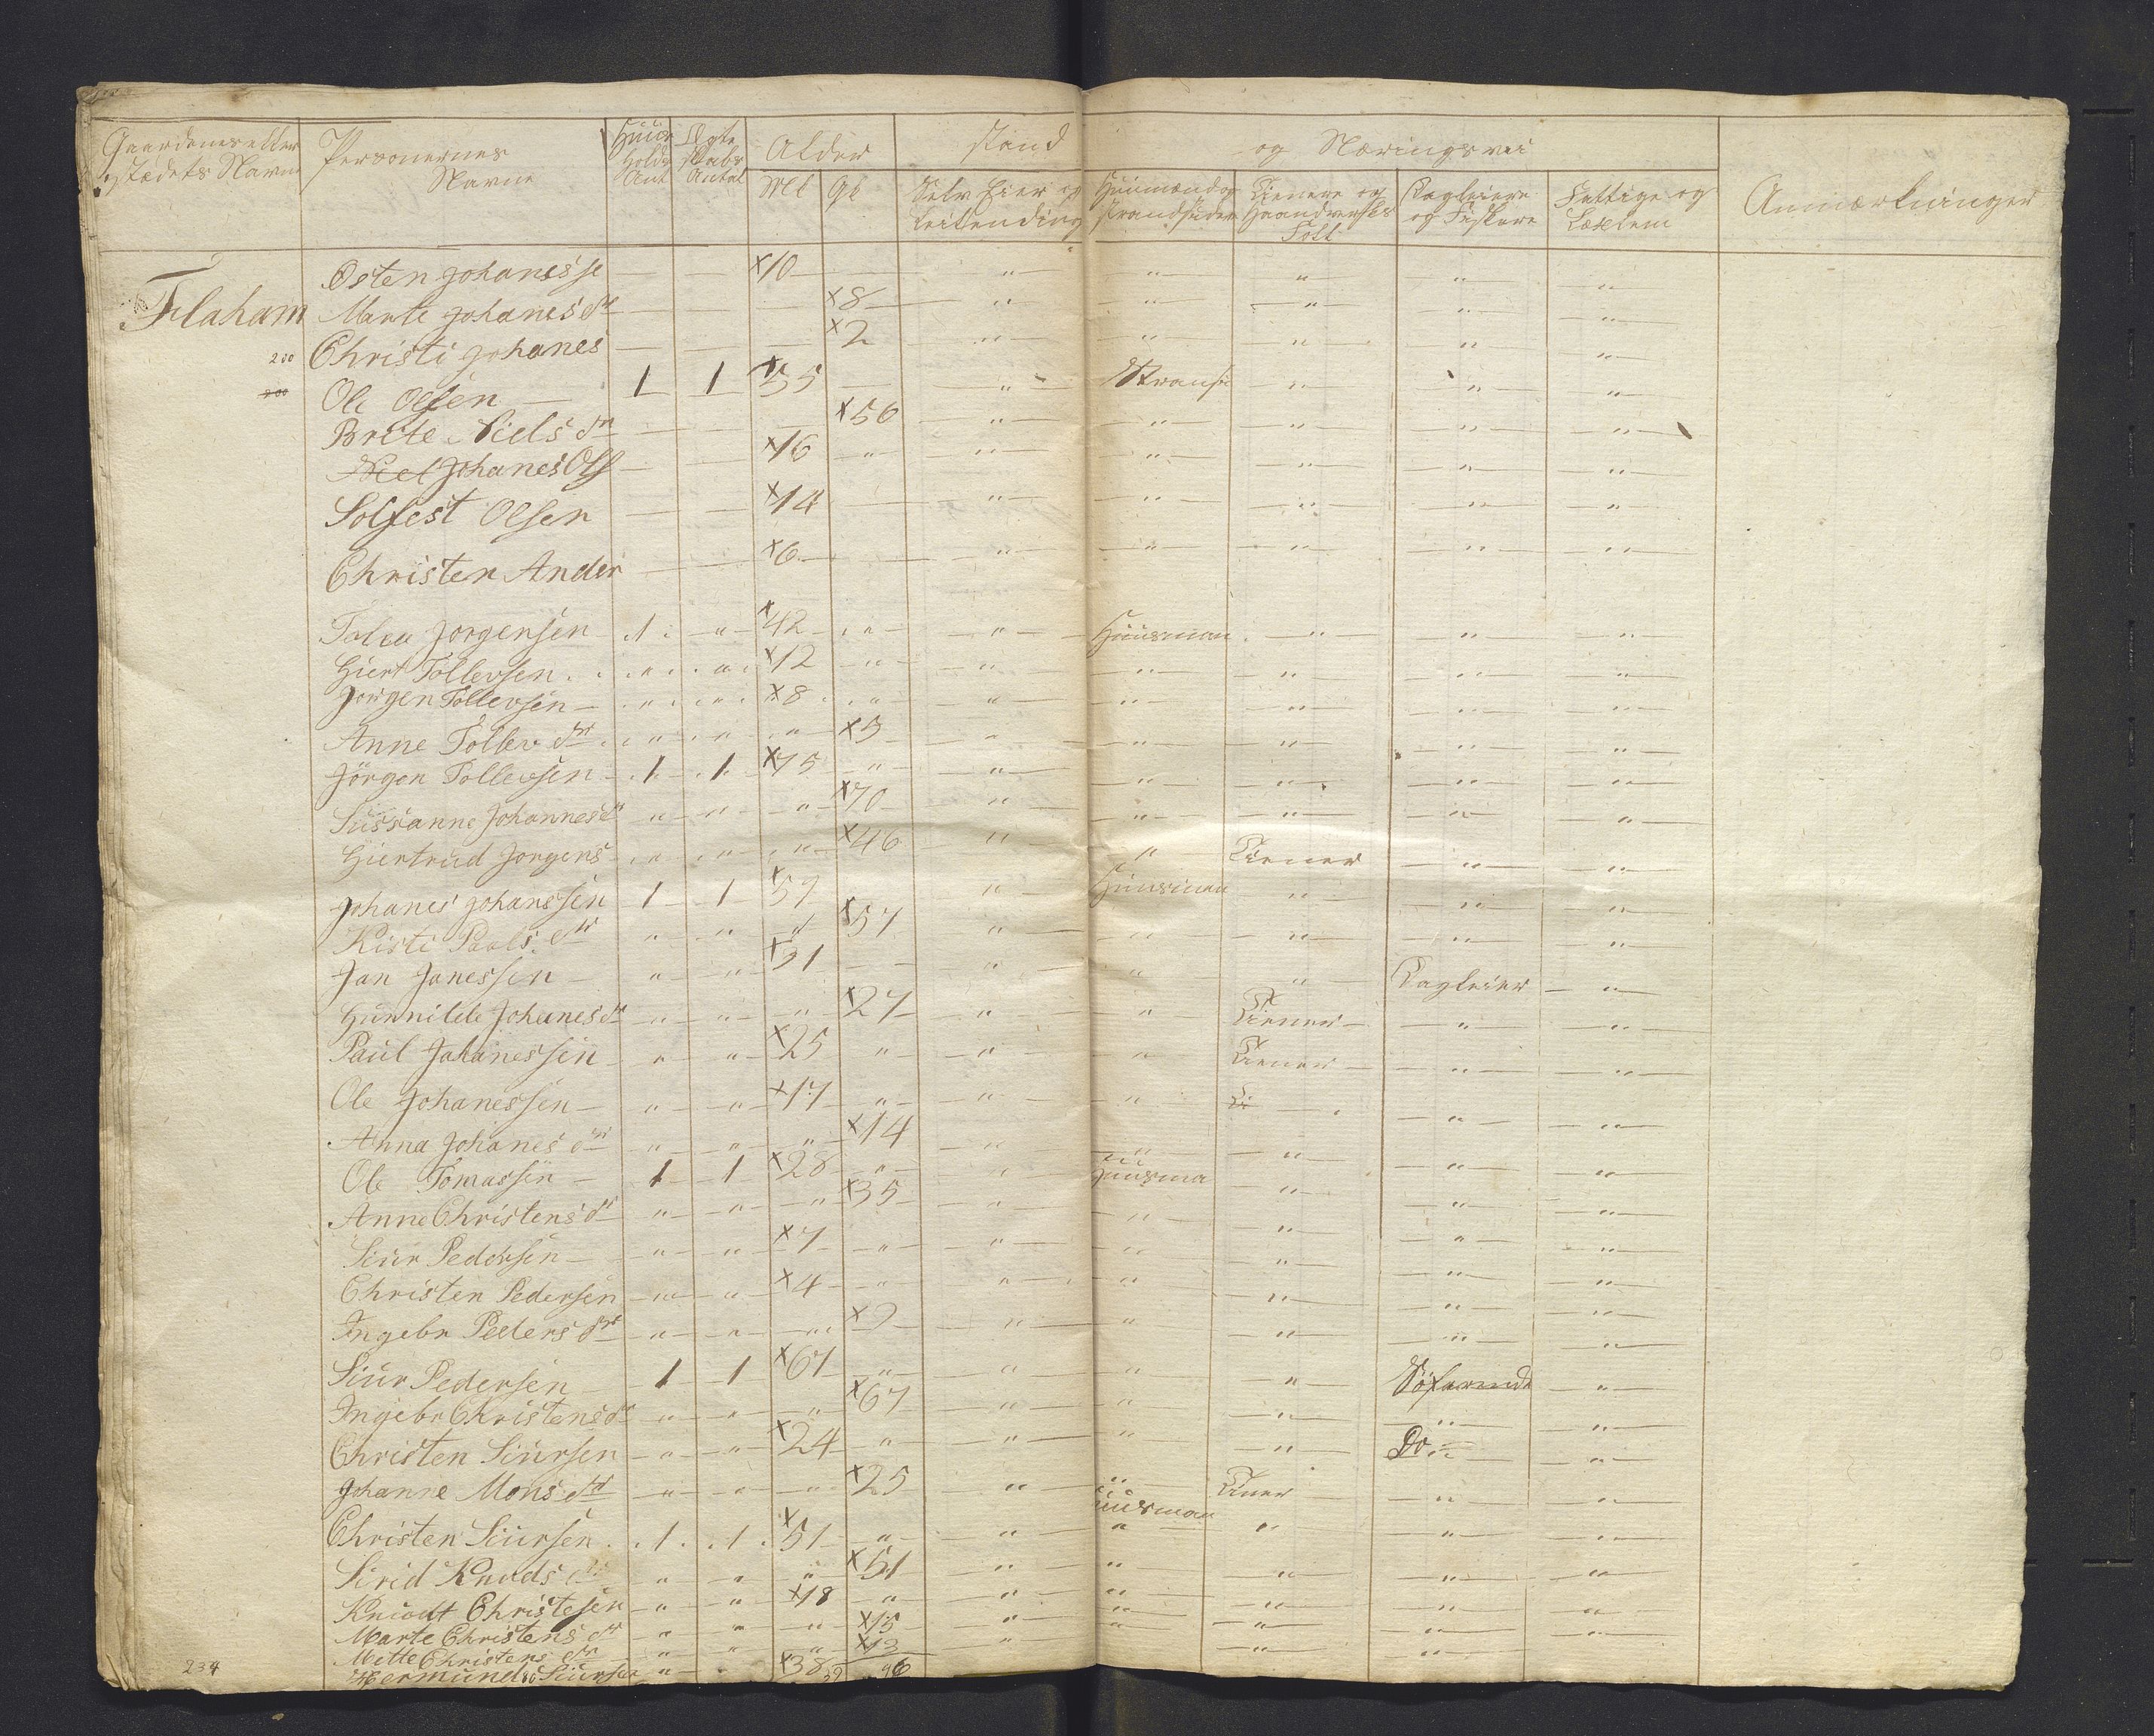 Gaardenes eller Stædets Navn | Personernes Navne | Huus Holds Ant | Ægte skabs Antal | Alder | Stand og Næringsvei | Anmærkninger
Mk | Qk | Selv Eier og Leilending | Huusmænd og Strandsidder | Tienere og Haandverks Folk | Dagleiere og Fiskere | Fattige og Læglem
Flaham
Osten Johanesse — — ×10 — " " " " "
Marte Johanes dtr — — — ×8 — " " " " "
200 Christi Johanes — — — ×2 " " " " "
200 Ole Olsen — 1 1 ×55 — " Stransi " " "
Brite Niels dtr — — — ×56 " " " " "
Niel Johanes Ols — — ×16 " " " " " "
Solfest Olsen — — ×14 — " " " " "
Christen Ander — — ×6 — " " " " "
Jorgensen 1 " ×42 " " Huusman " " "
Giert Tollevsen " " ×12 " " " " " "
Jorgen Tollevsen " " ×8 " " " " " "
Anne Tollev dtr " " " ×5 " " " " "
Jörgen Tollevsen 1 1 ×75 " " " " " "
Sussanne Johannes dr " " " ×70 " " " " "
Giertrud Jorgens " " " ×46 " " Tiener " "
Johanes Johanssen 1 1 ×59 " Huusman " " "
Kisti Pouls dtr " " " ×57 " " " " "
Jan Janessen — " " ×31 — " " " Dagleier "
Gunnilde Johanes dr " " " ×27 " " Tiener " "
Paul Johanessen " " ×25 " " " Tiener " "
Ole Johanessen " " ×17 " " " Ti " "
Anna Johanes dtr " " " ×14 " " " " "
Ole Tomassen — 1 1 ×28 " " Huusma " " "
Anne Christens dr " " " ×35 " " " " "
Siur Pedersen — " " ×7 " " " " " "
Christen Pedersen " " ×4 " " " " " "
Ingebr Peders dtr " " " ×2 " " " " "
Siur Pedersen 1 1 ×67 " " " " Söfarende "
Ingebr Christens dr " " " ×67 " " " " "
Christen Siursen " " ×24 " " " " Do "
Johanne Mons dtr " " " ×25 " " Tiner " "
Christen Siursen 1 1 ×51 " " Huusman " " "
Sirid Knuds " " " ×51 " " " " "
Knudt Christesen " " ×18 " " " " " "
Marte Christens dr " " " ×15 " " " " "
Mette Christens dtr " " " ×13 " " " "
Hermund Siursen " ×38 96
234